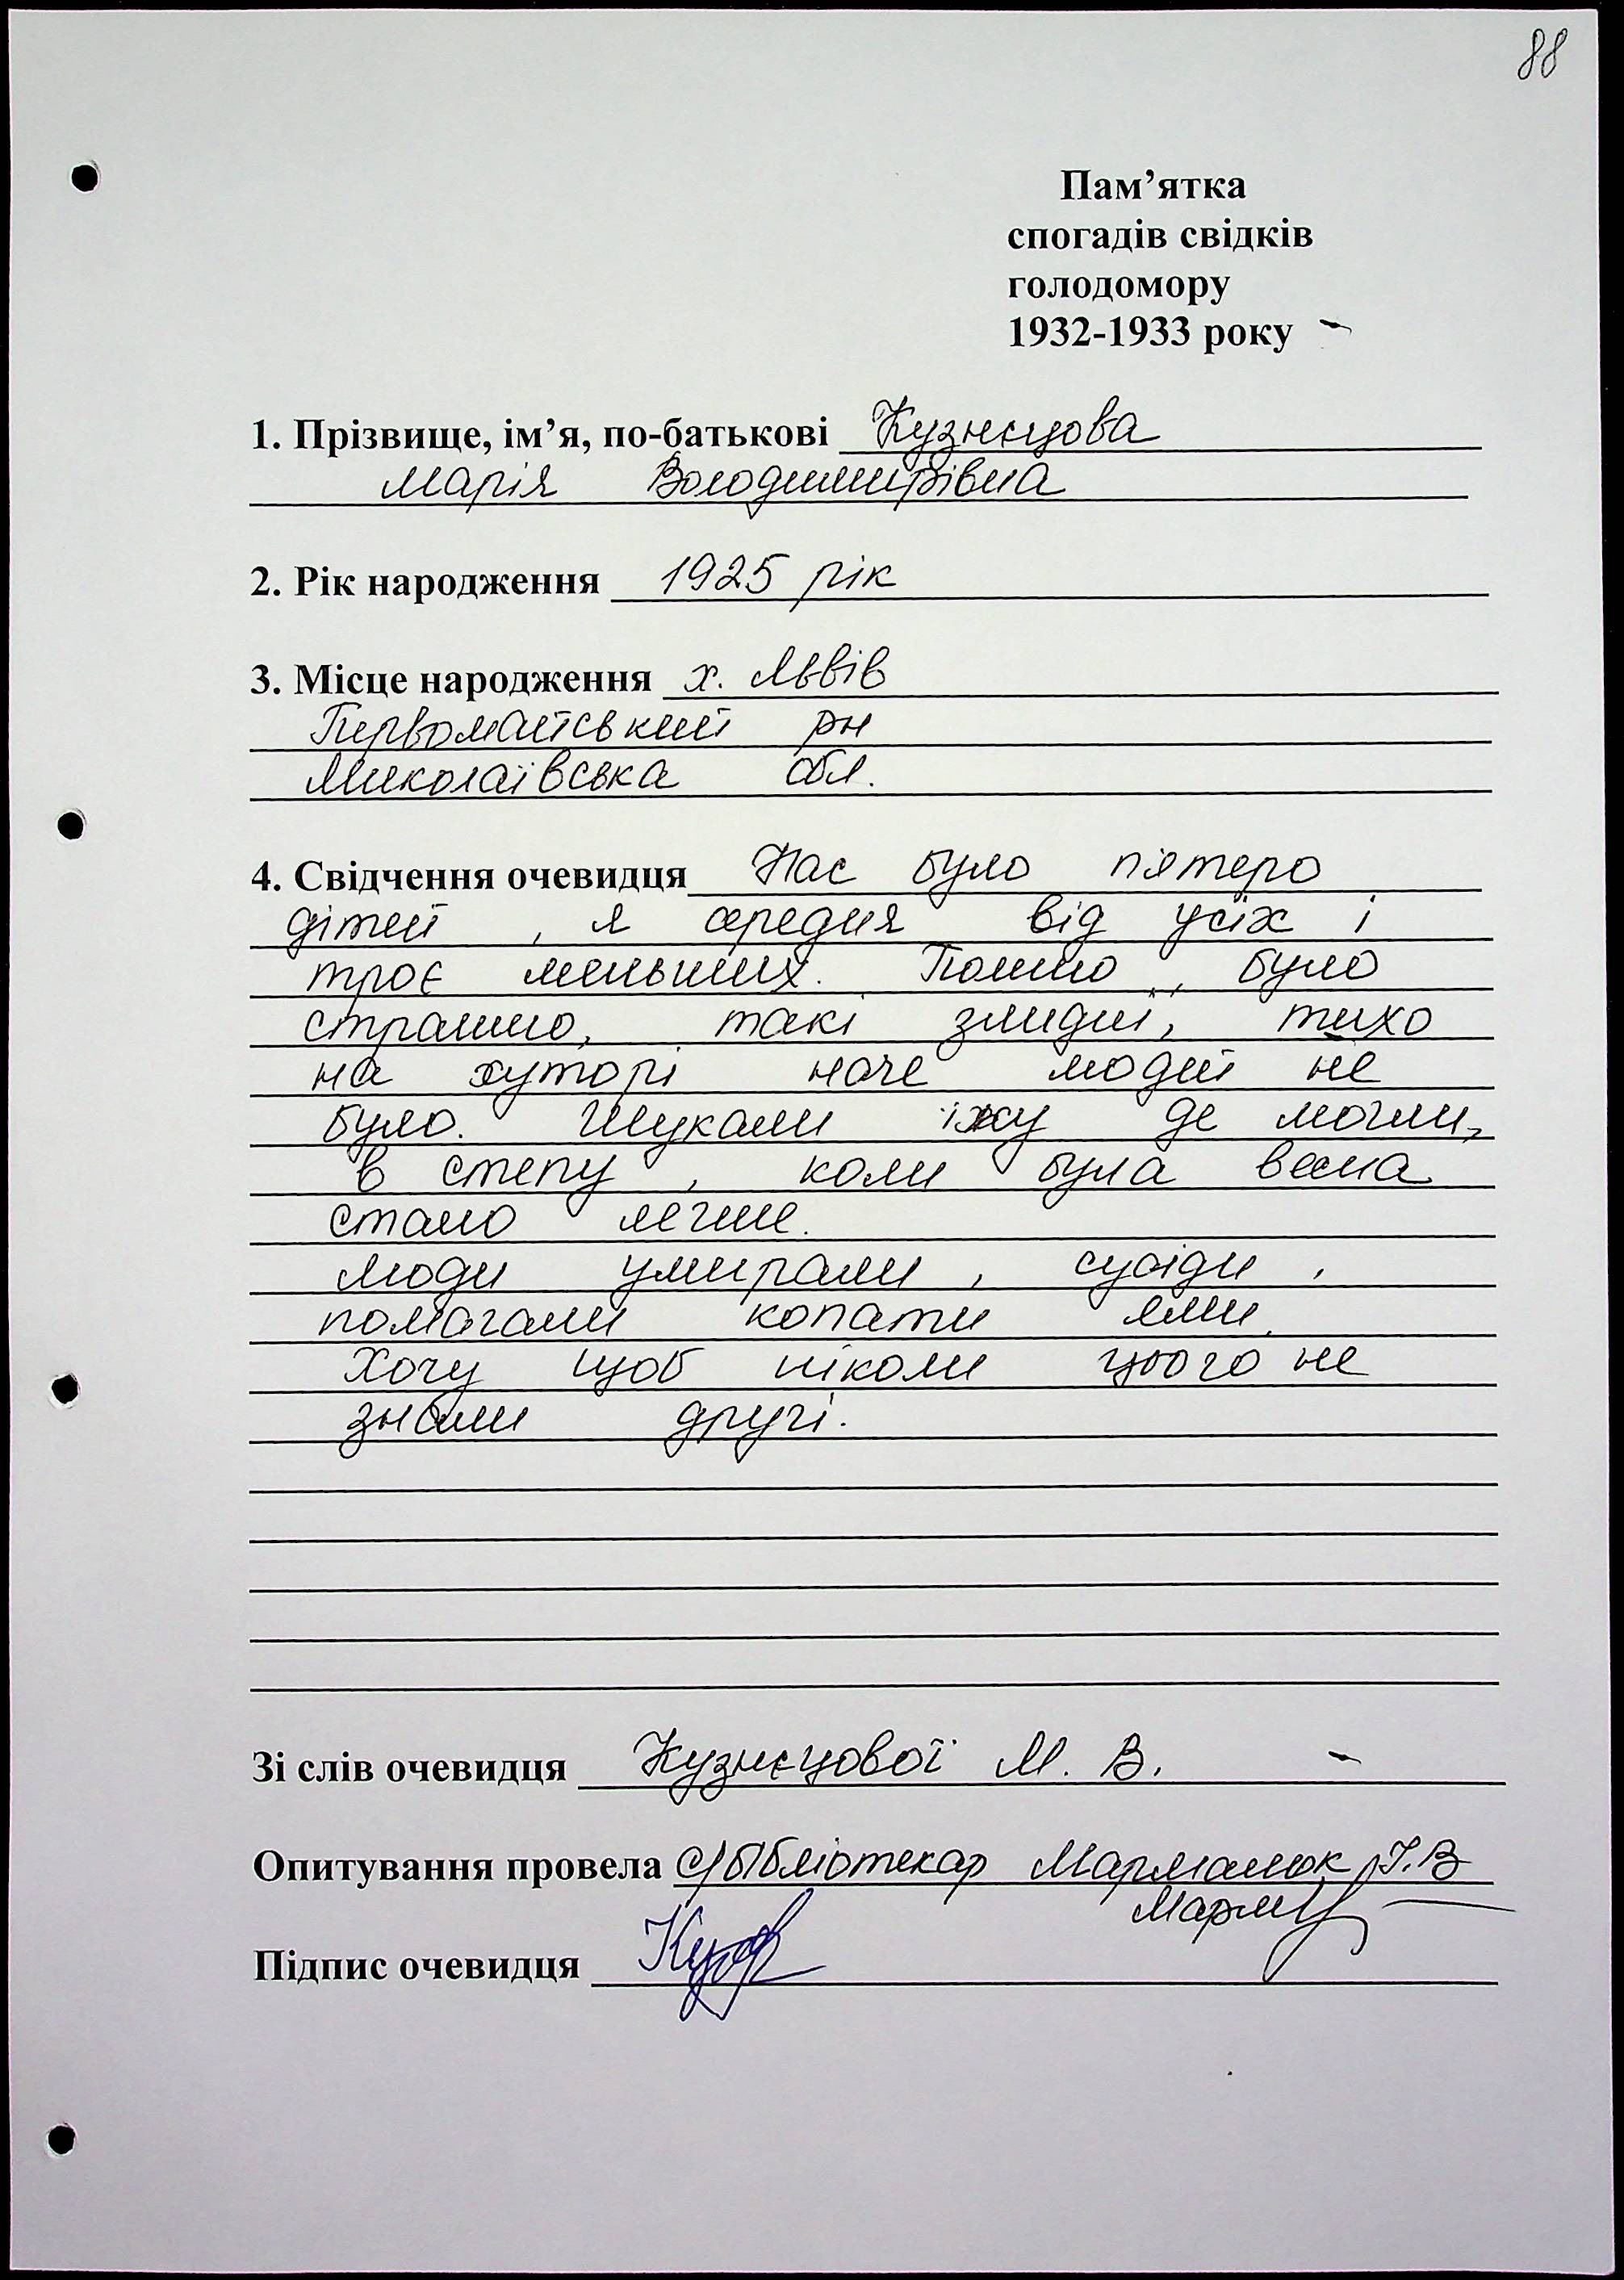 88
Пам’ятка
спогадів свідків
голодомору
1932-1933 року
1. Прізвище, ім’я, по-батькові Кузнєцова
Марія Володимирівна
2. Рік народження 1925 рік
3. Місце народження х. Львів
Первомайський рн
Миколаївська обл.
4. Свідчення очевидця Нас було п'ятеро
дітей , я середня від усіх і
троє меньших. Помню , було
страшно, такі злидні, тихо
на хуторі наче людей не
було. Шукали їжу де могли,
в степу , коли була весна
стало легше.
люди умирали , сусіди ,
помагали копати ями.
Хочу щоб ніколи цього не
знали другі.
Зі слів очевидця Кузнєцової М. В.
Опитування провела бібліотекар Мармалюк І.В
Підпис очевидця